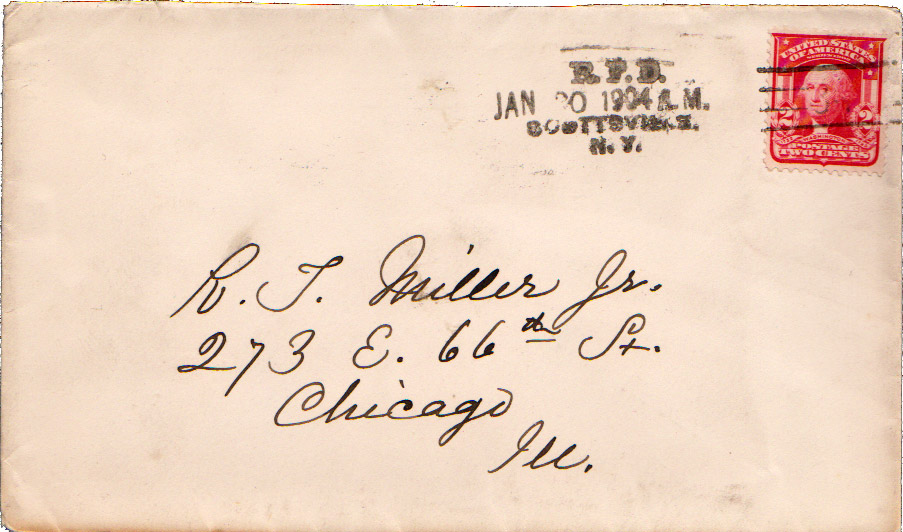 R.F.D.
JAN 20 1904 A.M.
SCOTTSVILLE.
N.Y.
UNITED STATES
OF AMERICA
2 2
WASHINGTON
POSTAGE
TWO CENTS
R. T. Miller Jr.
273 E. 66th St.
Chicago
Ill.